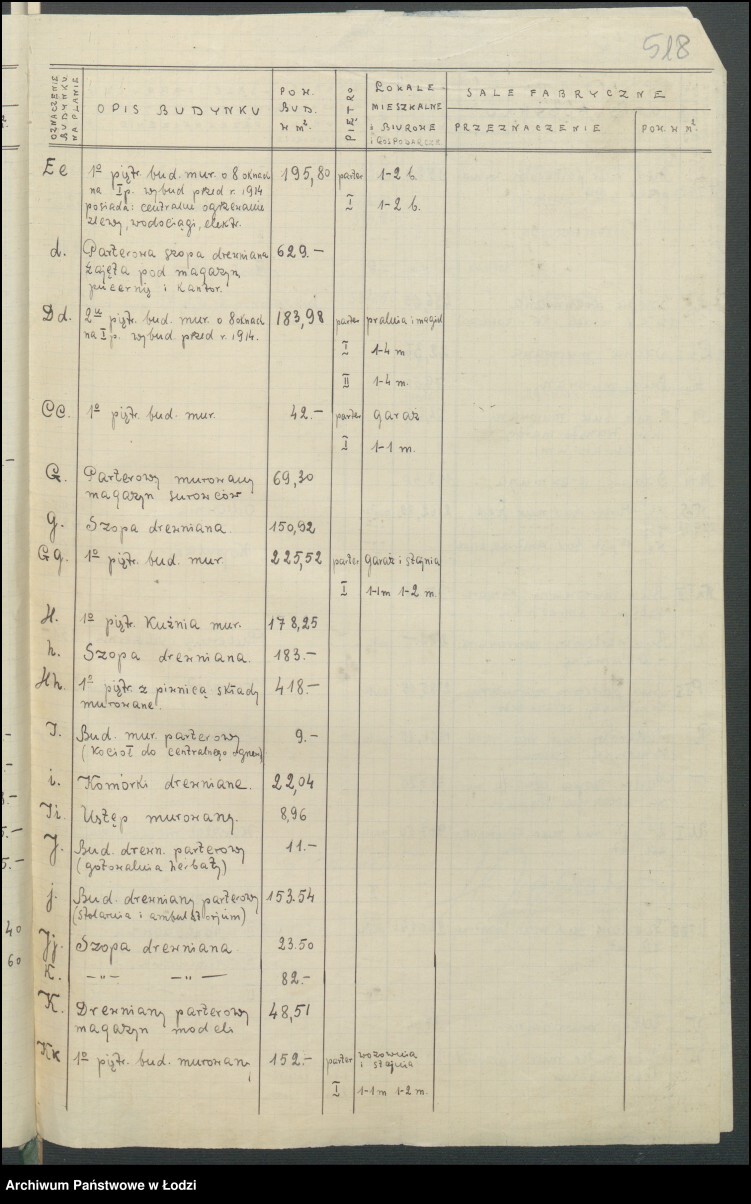 518
OZNACZENIE BUDYNKU NA PLANIE
OPIS BUDYNKU
POW. BUD. W M².
PIĘTRO
LOKALE MIESZKALNE I BIUROWE I GOSPODARCZE
SALE FABRYCZNE
PRZEZNACZENIE
POW. W M².
Ee 1º piętr. bud. mur. o 8 oknach 195,80 parter 1-2 b.
na I p. wybud przed r. 1914 I 1-2 b.
posiada: centralne ogrzewanie
zlewy, wodociągi, elektr.
d. Parterowa szopa drewniana 629.-
zajęta pod magazyn,
pucernię i kantor.
Dd. 2u piętr. bud. mur. o 8 oknach 183,98 parter pralnia i magiel
na I p. wybud przed r. 1914. I 1-4 m
II 1-4 m.
Cc. 1º piętr. bud. mur. 42.- parter garaż
I 1-1 m.
G. Parterowy murowany 69,30
magazyn surowców
g. Szopa drewniana. 150,92
Gg. 1º piętr. bud. mur. 225,52 parter garaż i stajnia
I 1-1m 1-2 m.
H. 1º piętr. Kuźnia mur. 178,25
h. Szopa drewniana. 183.-
Hh. 1º piętr. z piwnicą składy 418.-
murowane.
I. Bud. mur. parterowy 9.-
(Kocioł do centralnego ogrzew.)
i. Komórki drewniane. 22,04
Ii. Ustęp murowany. 8,96
J. Bud. drewn. parterowy 11.-
(gotowalnia herbaty)
j. Bud drewniany parterowy 153.54
(stolarnia i ambulatorjum)
Jj. Szopa drewniana. 23.50
K. -"- -"- 82.-
K. Drewniany parterowy 48,51
magazyn modeli
Kk 1º piętr. bud. murowany 152.- parter wozownia
i stajnia
I 1-1m 1-2 m.
40
60
Archiwum Państwowe w Łodzi